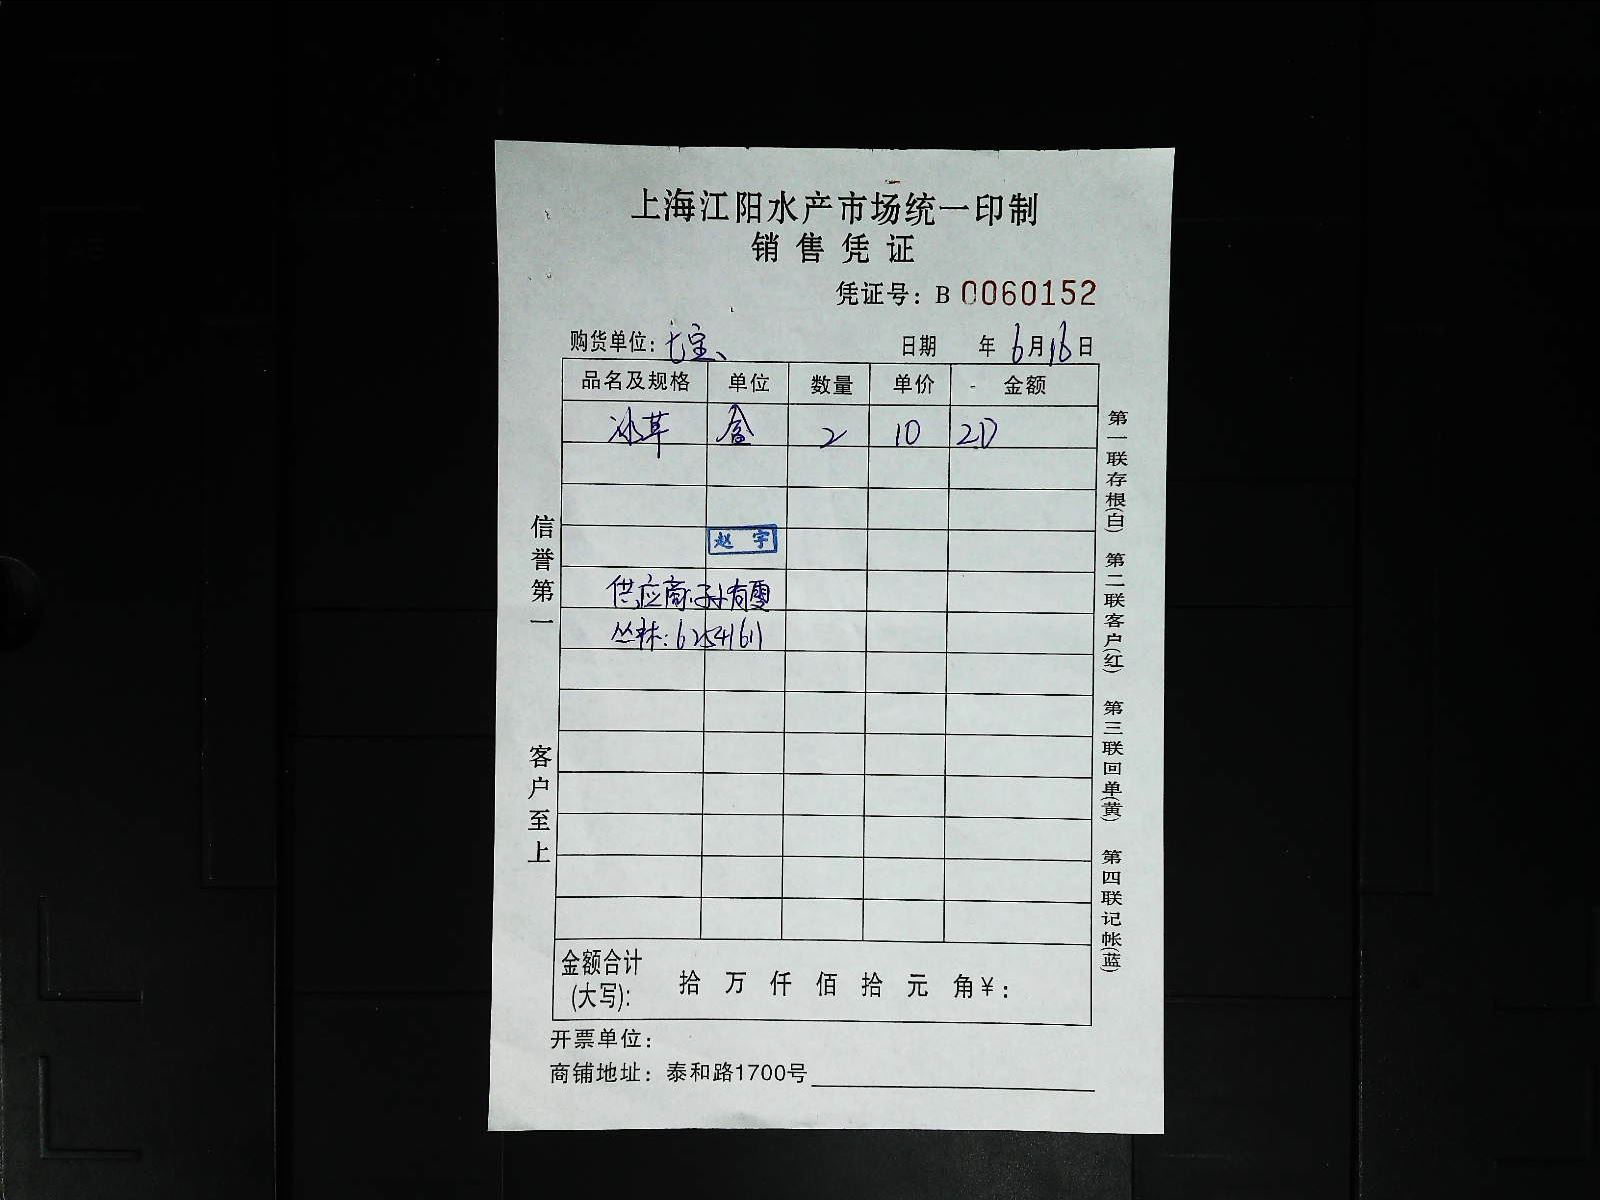 上海江阳水产市场统一印制
销售凭证
凭证号：B 0060152
购货单位：七宝、 日期 年 6月16日
品名及规格 单位 数量 单价 金额
冰草 盒 2 10 20
赵宇
供应商：孙有雪
丛林：62541611
金额合计（大写）： 拾 万 仟 佰 拾 元 角 ¥：
开票单位：
商铺地址：泰和路1700号
信誉第一
客户至上
第一联存根（白）
第二联客户（红）
第三联回单（黄）
第四联记帐（蓝）